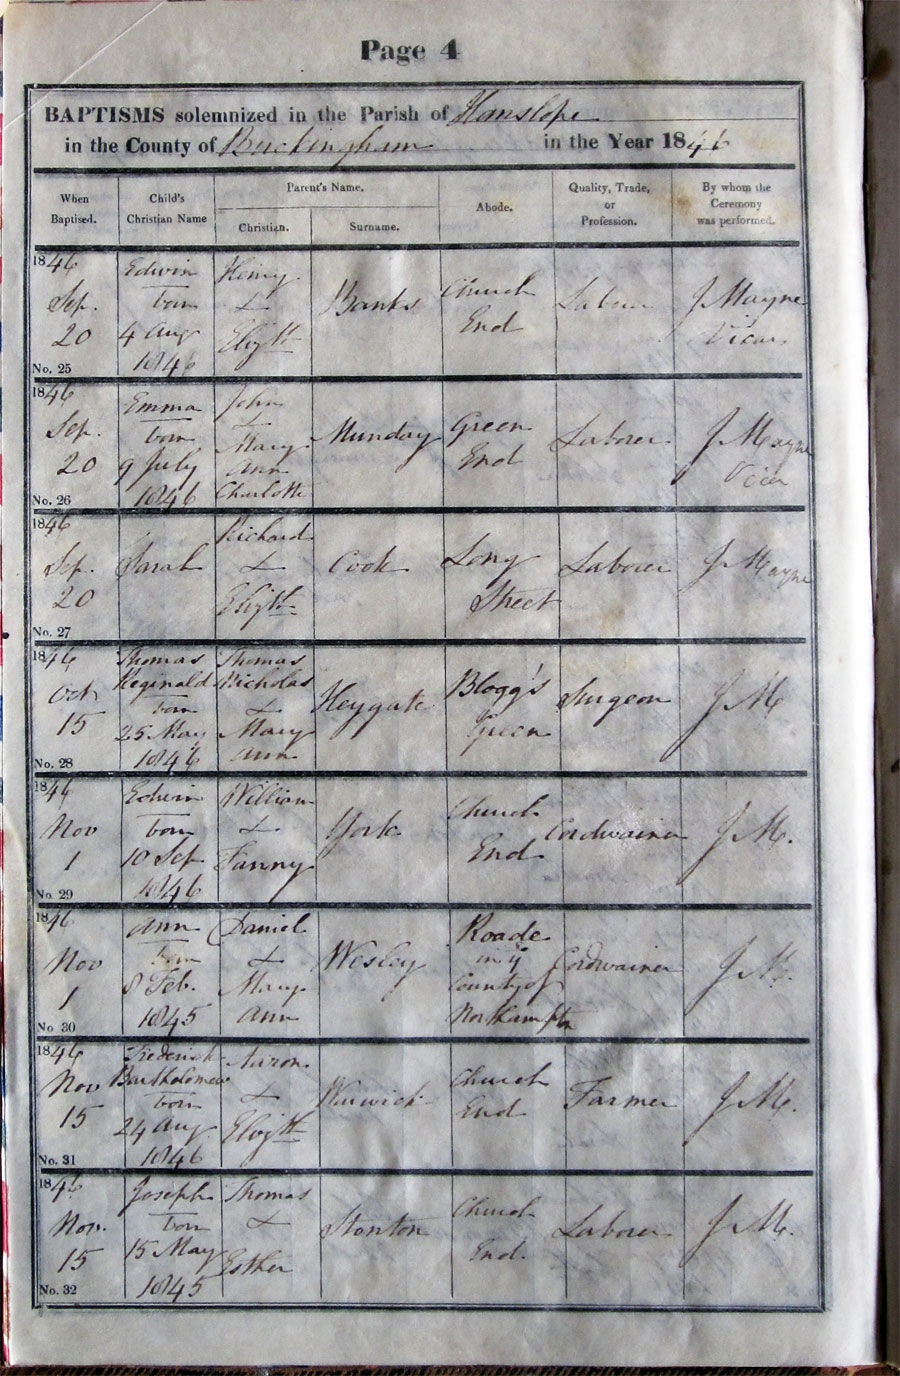 Page 4
BAPTISMS solemnized in the Parish of Hanslope
in the County of Buckingham in the Year 1846
When Baptised.
Child's Christian Name
Parent's Name.
Christian.
Surname.
Abode.
Quality, Trade, or Profession.
By whom the Ceremony was performed.
1846
Sep.
20
No. 25
Edwin
born
4 Aug
1846
Henry
&
Elizth
Banks
Church
End
Labour
J Mayne
Vicar
1846
Sep.
20
No. 26
Emma
born
9 July
1846
John
&
Mary
Ann
Charlotte
Munday
Green
End
Laborer
J Mayne
Vicar
1846
Sep.
20
No. 27
Sarah
Richard
&
Elizth
Cook
Long
Street
Laborer
J Mayne
1846
Oct
15
No. 28
Thomas
Reginald
born
25 May
1846
Thomas
Nicholas
&
Mary
Ann
Heygate
Blogg's
Green
Surgeon
J M
1846
Nov
1
No. 29
Edwin
born
10 Sep.
1846
William
&
Fanny
York
Church
End
Cordwainer
J M.
1846
Nov
1
No. 30
Ann
born
8 Feb.
1845
Daniel
&
Mary
Ann
Wesley
Roade
in ye
County of
Northampton
Cordwainer
J M.
1846
Nov
15
No. 31
Frederick
Bartholomew
born
24 Aug
1846
Aaron
&
Elizth
Warwick
Church
End
Farmer
J M.
1846
Nov.
15
No. 32
Joseph
born
15 May
1845
Thomas
&
Esther
Stonton
Church
End.
Laborer
J M.